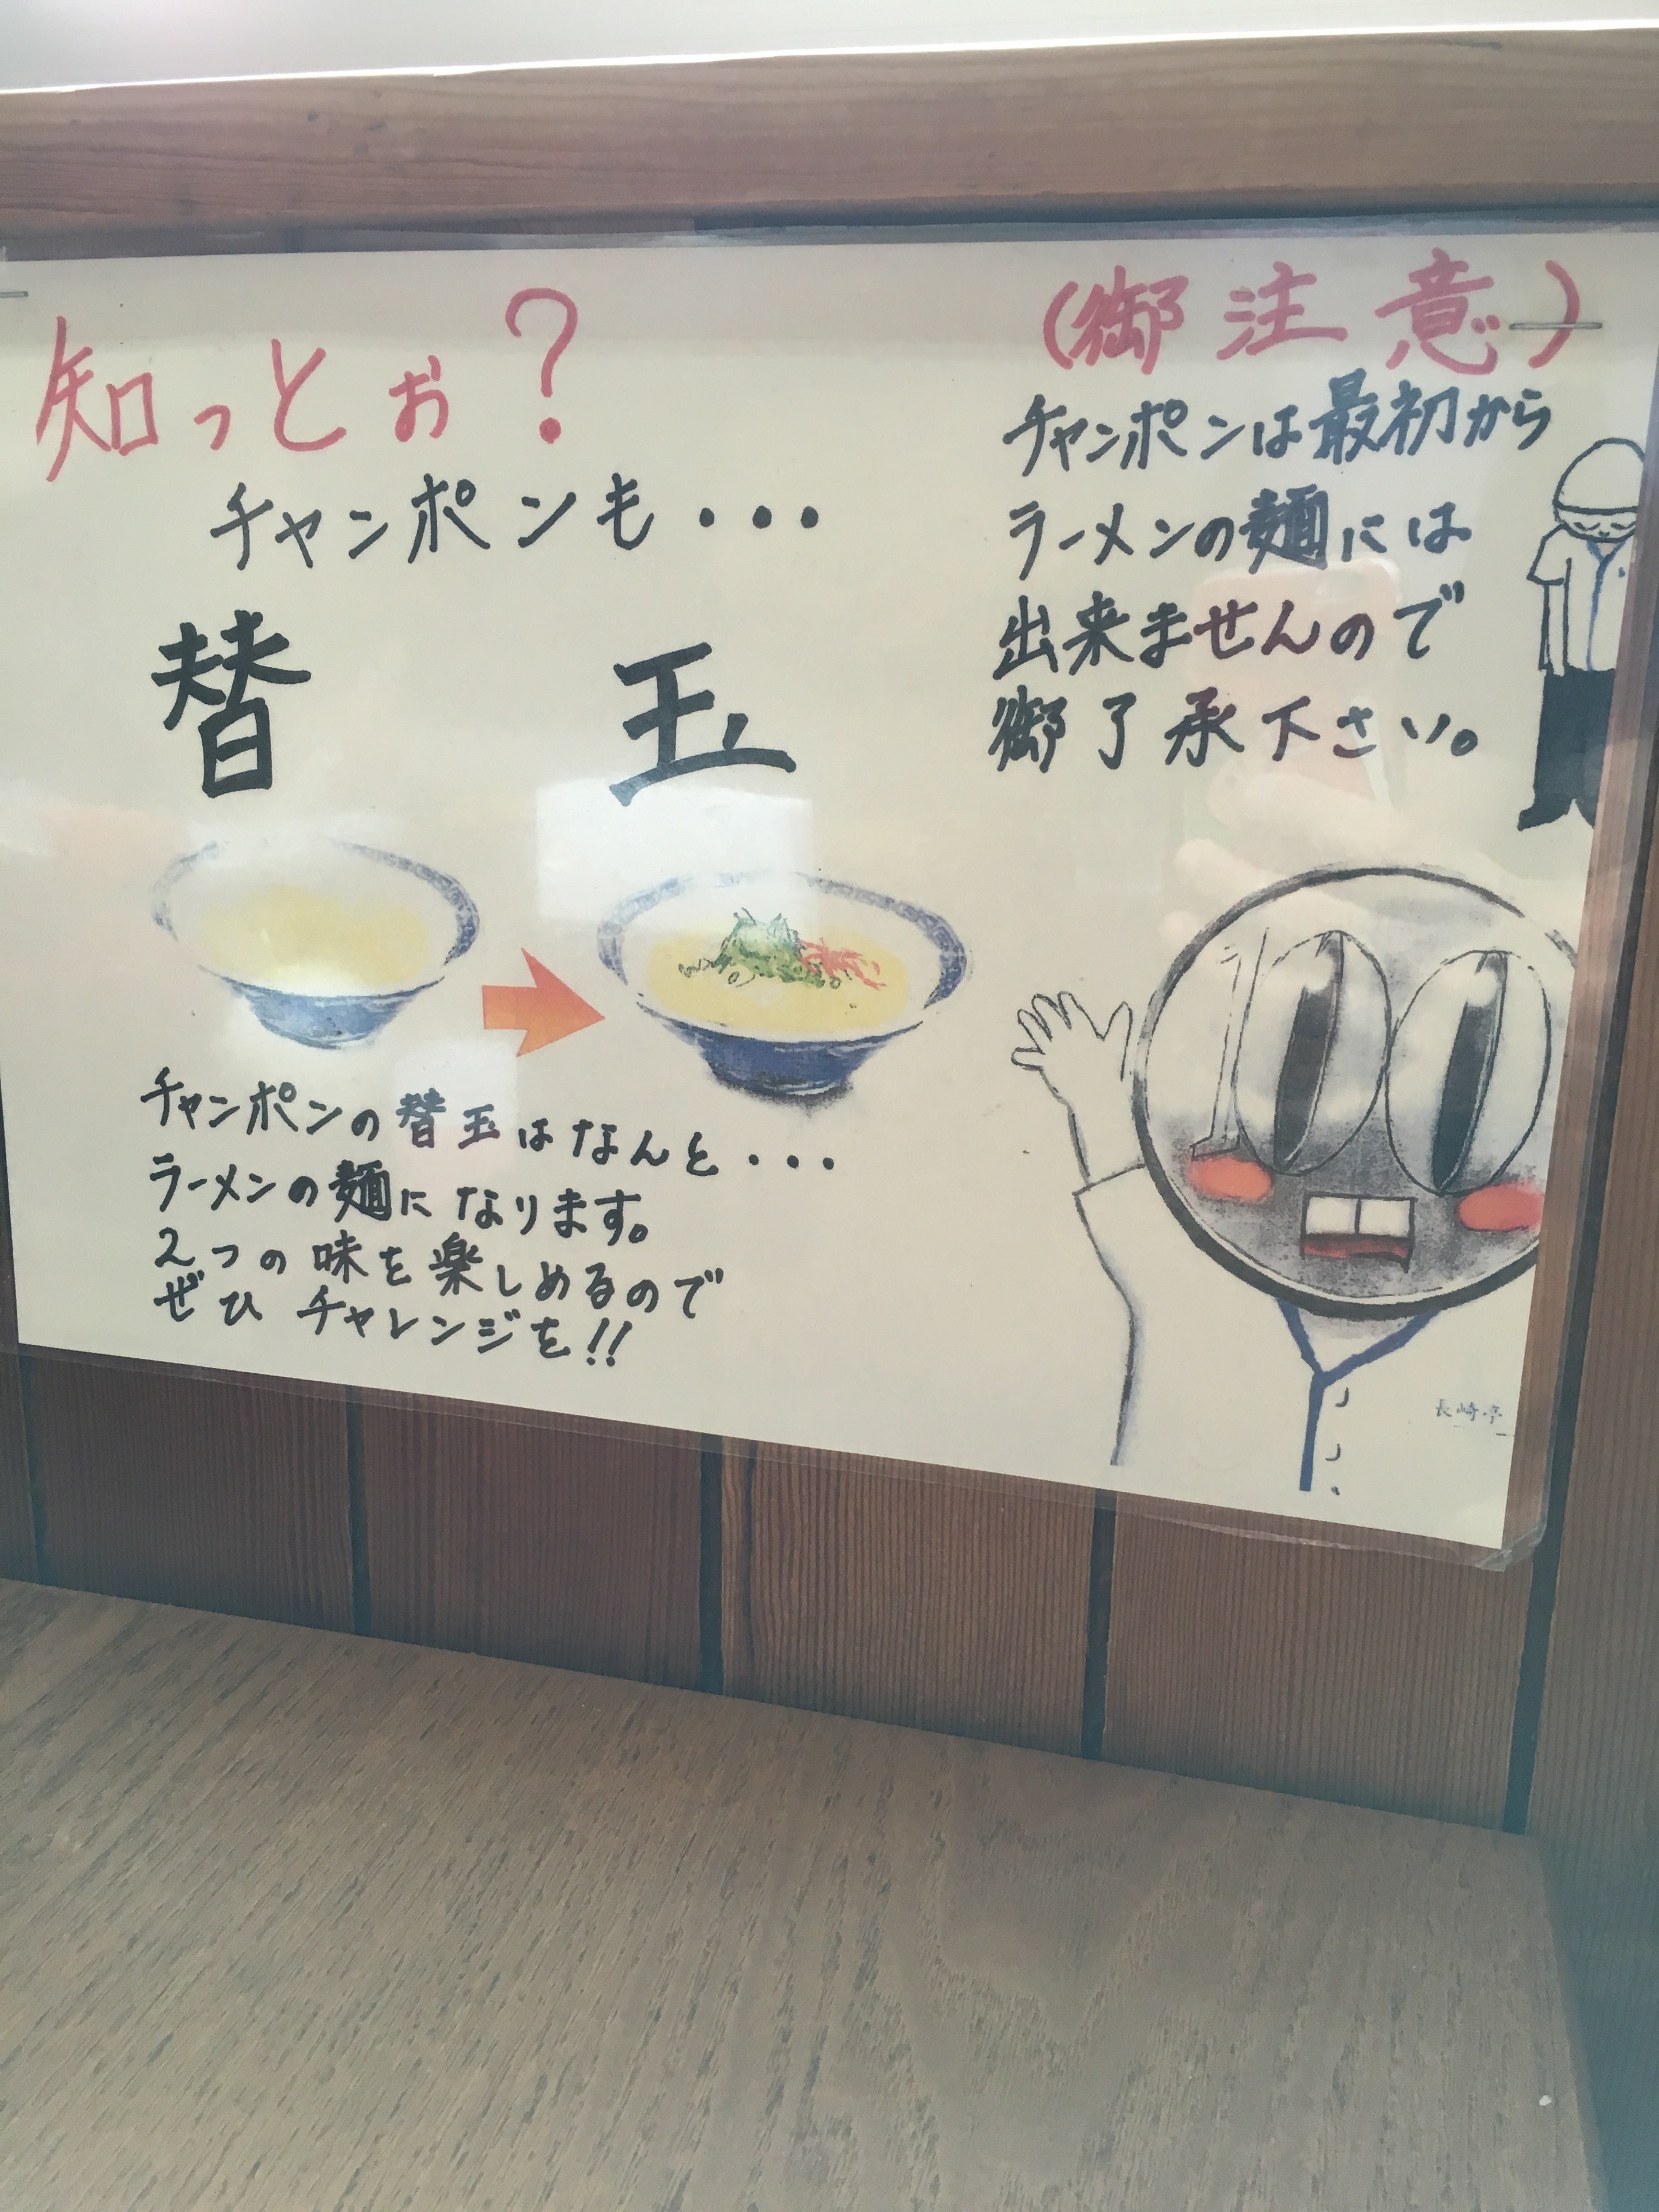 知っとぉ?
チャンポンも・・・
替玉
チャンポンの替玉はなんと・・・
ラーメンの麺になります。
2つの味を楽しめるので
ぜひチャレンジを!!
(御注意)
チャンポンは最初から
ラーメンの麺には
出来ませんので
御了承下さい。
長崎亭